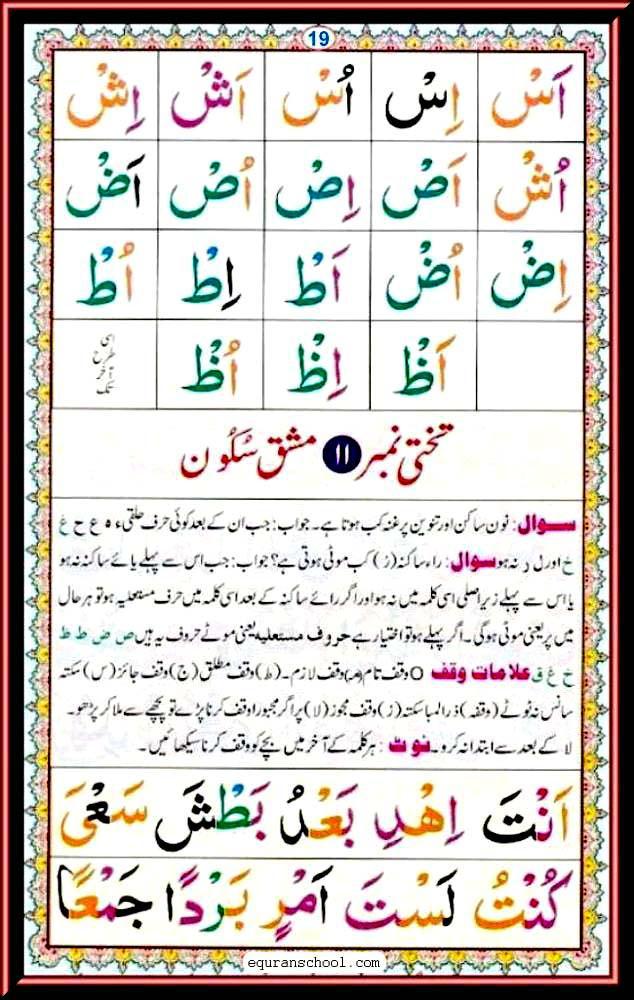 19
اَسْ اِسْ اُسْ اَشْ اِشْ
اُشْ اَصْ اِصْ اُصْ اَضْ
اِضْ اُضْ اَطْ اِطْ اُطْ
اَظْ اِظْ اُظْ اسی طرح آخر تک
تختی نمبر ۱۱ مشق سُکُون
سوال: نون ساکن اور تنوین پر غنہ کب ہوتا ہے۔ جواب: جب ان کے بعد کوئی حرف حلقی ء ہ ع ح غ
خ اور ل ر نہ ہو سوال: راء ساکنہ (ز) کب موٹی ہوتی ہے؟ جواب: جب اس سے پہلے یائے ساکنہ نہ ہو
یا اس سے پہلے زیر اصلی اسی کلمہ میں نہ ہو اور اگر رائے ساکنہ کے بعد اسی کلمہ میں حرف مستعلیہ ہو تو ہر حال
میں پر یعنی موٹی ہوگی۔ اگر پہلے ہو تو اختیار ہے حروف مستعلیہ یعنی موٹے حروف یہ ہیں ص ض ط ظ
خ غ ق علامات وقف O وقف تام (مـ) وقف لازم۔ (ط) وقف مطلق (ج) وقف جائز (س) سکتہ
سانس نہ ٹوٹے (وقفہ) ذرا لمبا سکتہ (ز) وقف مجوز (لا) پر اگر مجبورا وقف کرنا پڑے تو پیچھے سے ملا کر پڑھو۔
لا کے بعد سے ابتدا نہ کرو۔ نوٹ: ہر کلمہ کے آخر میں بچے کو وقف کرنا سیکھائیں۔
اَنْتَ اِهْدِ بَعْدُ بَطْشَ سَعْیَ
كُنْتُ لَسْتَ اَمْرٍ بَرْدًا جَمْعًا
equranschool.com